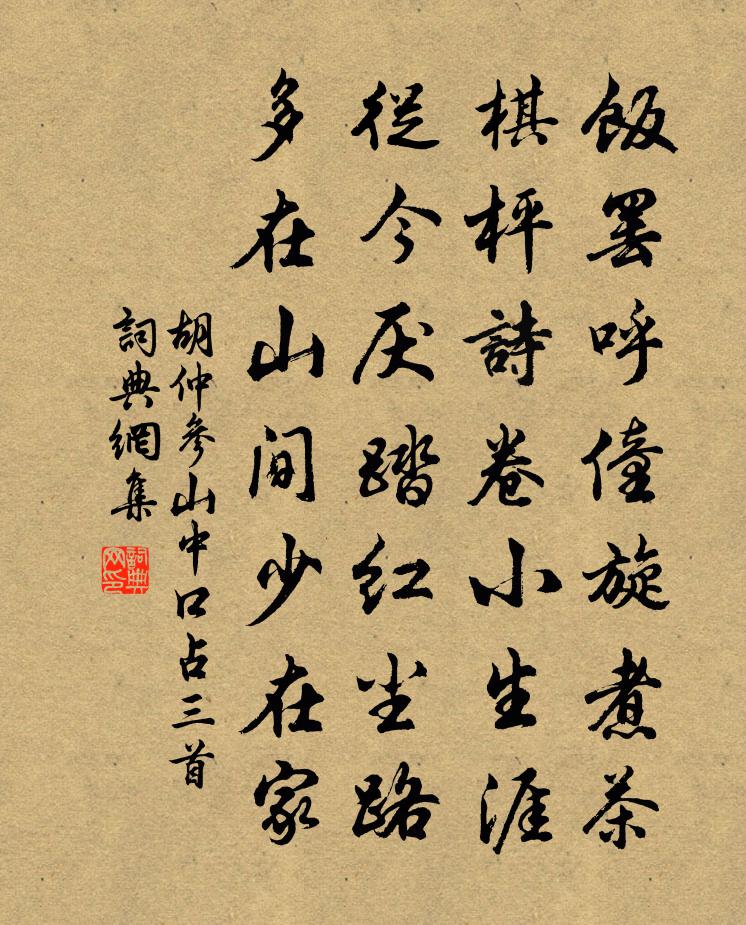 飯罷呼僮旋煮茶
棋枰詩卷小生涯
從今厌踏红尘路
多在山间少在家
胡仲參山中口占三首
詞典網集
詞典网印